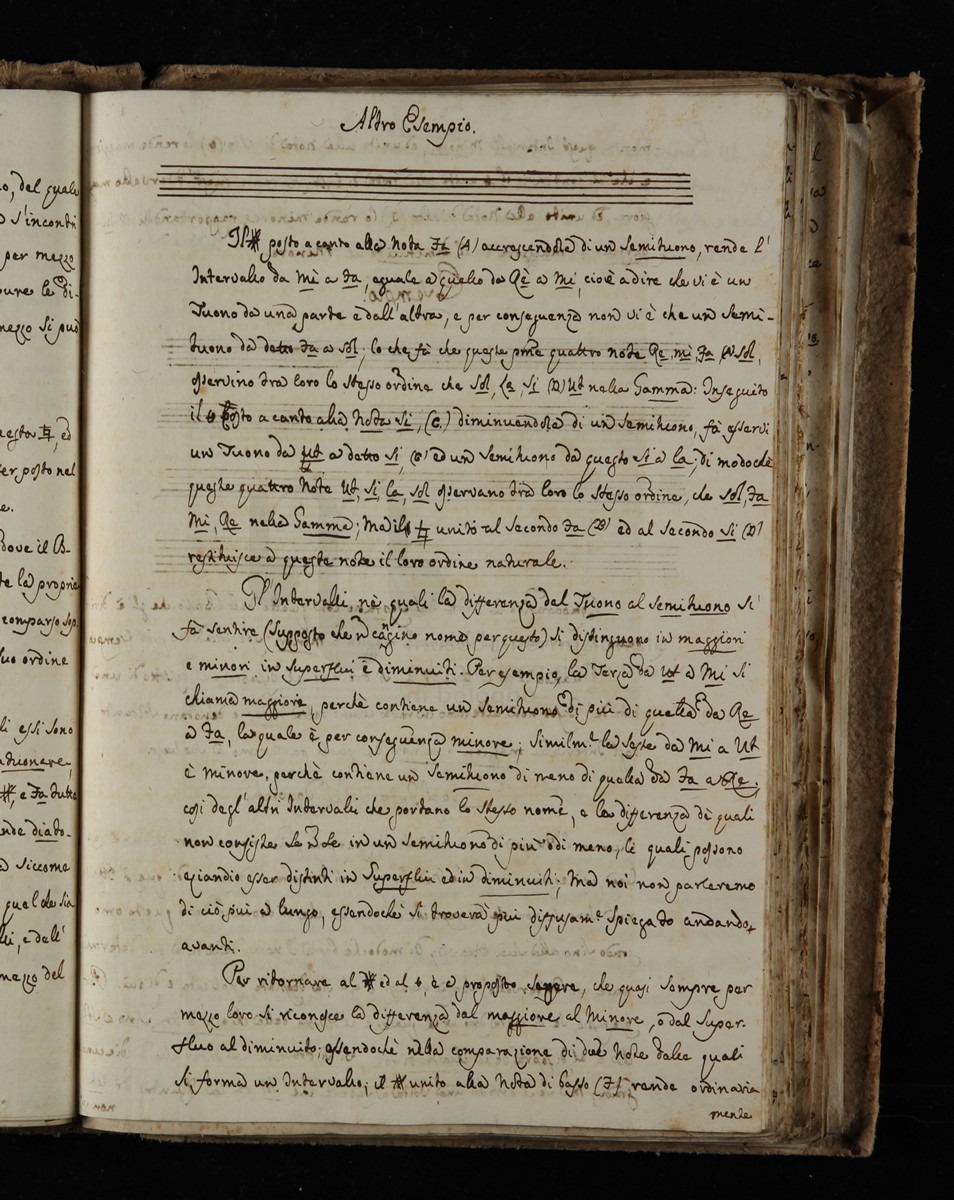 Altro Esempio.
Il ⌗ posto a canto alla Nota Fa (A) accrescendola di un Semituono, rende l'
Intervallo da Mi a Fa, eguale a quello da Rè a Mi, cioè a dire che vi è un
Tuono da una parte e dall'altra, e per conseguenza non vi è che un Semi-
tuono da detto Fa a Sol; lo che fà che queste pme quattro note Re, mi, Fa (A) Sol,
osservino trà loro lo stesso ordine che Sol, La, Si (D) Ut nella Gamma: Inseguito
il b posto a canto alla Nota Si, (C) diminuendola di un Semituono, fà esservi
un Tuono da Ut a detto Si, ed un Semituono da questo Si a la; di modochè
queste quattro Note Ut, Si, la, Sol osservano trà loro lo stesso ordine, che Sol, Fa
Mi, Re nella Gamma; Ma il ♮ unito al Secondo Fa (B) ed al Secondo Si (D)
restituisce a queste note il loro ordine naturale.
Gl'Intervalli, nè quali la differenza dal Tuono al Semituono si
fà sentire (Supposto che non cangino nome per questo) si distinguono in maggiori
e minori in Superflui e diminuiti. Per esempio, la Terza da Ut a Mi si
chiama maggiore, perchè contiene un Semituono di più di quella da Re
a Fa, la quale è per conseguenza minore; Similmte la Sesta da Mi a Ut
è Minore, perchè contiene un Semituono di meno di quella da Fa a Re;
così degl'altri Intervalli che portano lo stesso nome, e la differenza di quali
non consiste se non in un Semituono di più ò di meno, li quali possono
eziandio esser distinti in Superflui ed in diminuiti; Ma noi non parleremo
di ciò più a lungo, essendochè si troverà più diffusamte Spiegato andando
avanti.
Per ritornare al ⌗ ed al b, è a proposito Sapere, che quasi sempre per
mezzo loro si riconosce la differenza dal maggiore al Minore, o dal Super-
fluo al diminuito; essendochè nella comparazione di due Note dalle quali
si forma un Intervallo; il ⌗ unito alla Nota di basso (F) rende ordinaria
mente